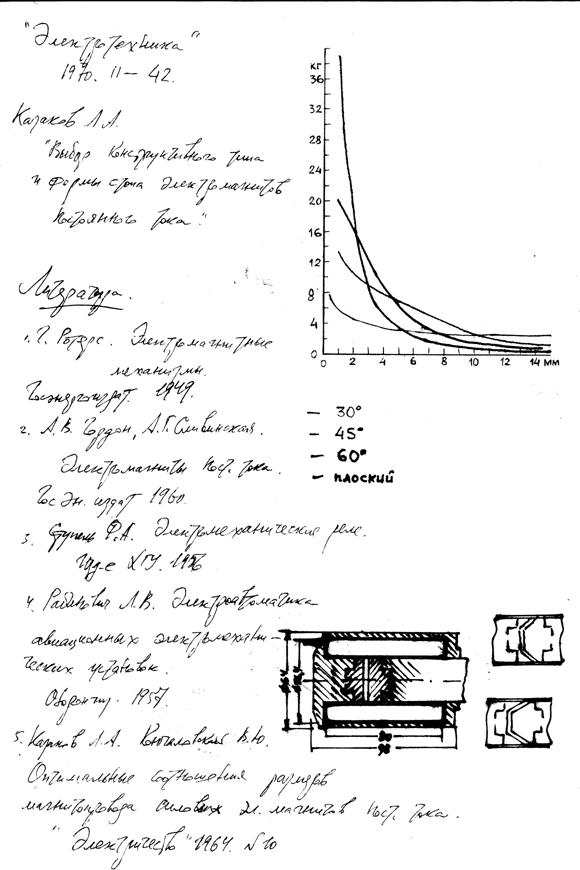 "Электротехника"
1970. 11 — 42.
Казаков Л.А.
"Выбор конструктивного типа
и формы стопа электромагнитов
постоянного тока."
Литература.
1. Ротерс. Электромагнитные
механизмы.
Госэнергоиздат. 1949.
2. А.В. Гордон, А.Г. Сливинская.
Электромагниты пост. тока.
Гос Эн. издат 1960.
3. Ступель Ф.А. Электромеханические реле.
Изд-е ХГУ. 1956
4. Рабинович Л.В. Электроавтоматика
авиационных электромехани-
ческих установок.
Оборонгиз. 1957
5. Казаков Л.А. В.Ю.
Оптимальные соотношения размеров
магнитопровода силовых эл. магнитов пост. тока.
"Электричество" 1964. N 10
кг
36
32
28
24
20
16
12
8
4
0
0 2 4 6 8 10 12 14 мм
— 30°
— 45°
— 60°
— плоский
80
96